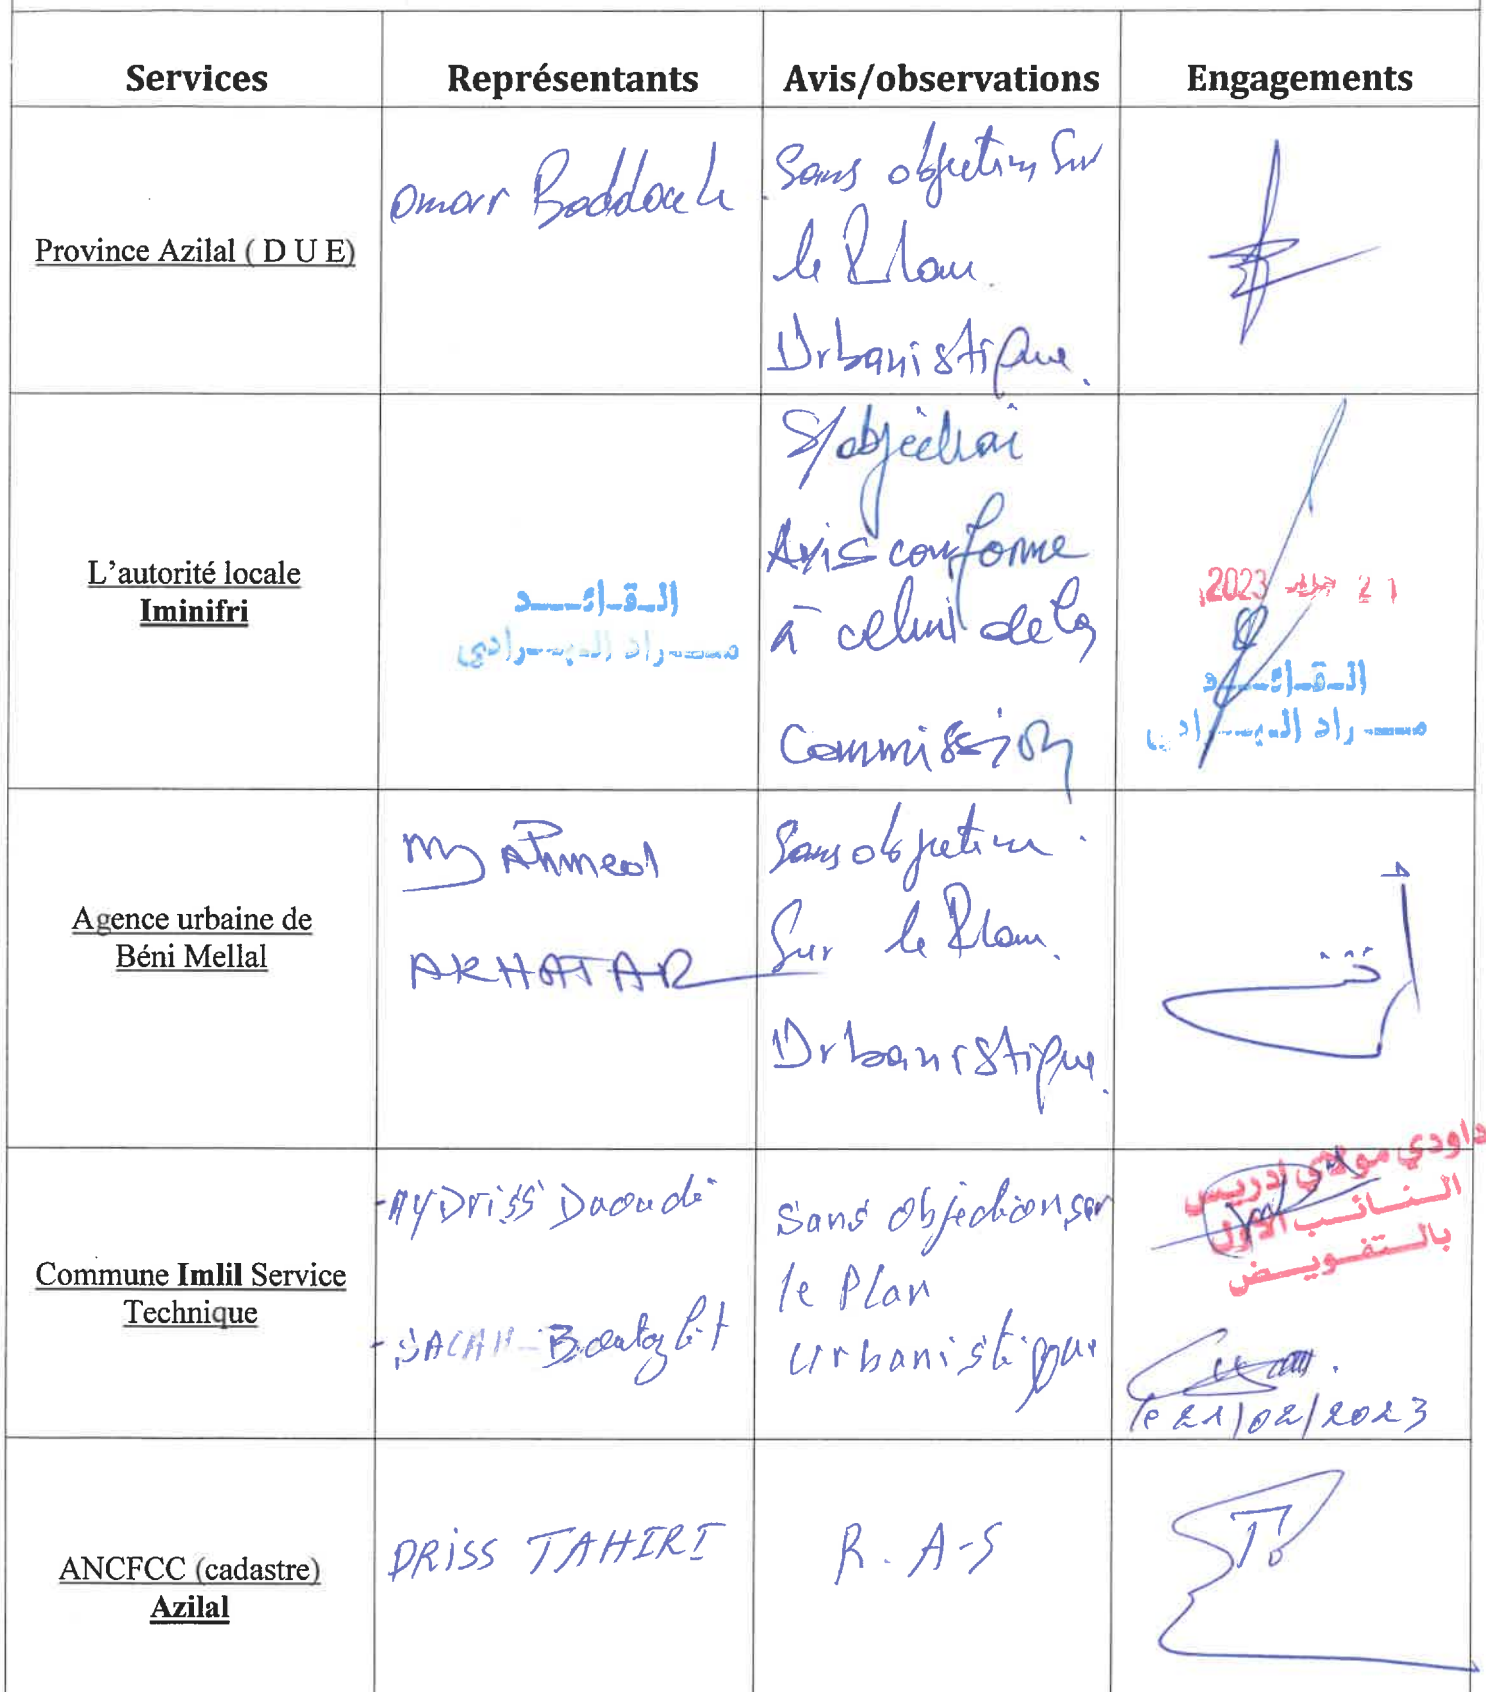 Services Représentants Avis/observations Engagements
Province Azilal ( D U E)
Omar
Sans objection sur
le Plan
Urbanistique.
L'autorité locale
Iminifri
القائد
مراد البرادي
S/objection
Avis conforme
à celui de la
Commission
21 2023
القائد
مراد البرادي
Agence urbaine de
Béni Mellal
My Ahmed
AKHATAR
Sans objection
Sur le Plan
Urbanistique.
Commune Imlil Service
Technique
- My Driss Daoudi
- SALAH
Sans objection sur
le Plan
urbanistique
داودي مولاي إدريس
النائب الأول
بالتفويض
le 21/02/2023
ANCFCC (cadastre)
Azilal
DRISS TAHIRI
R.A-S